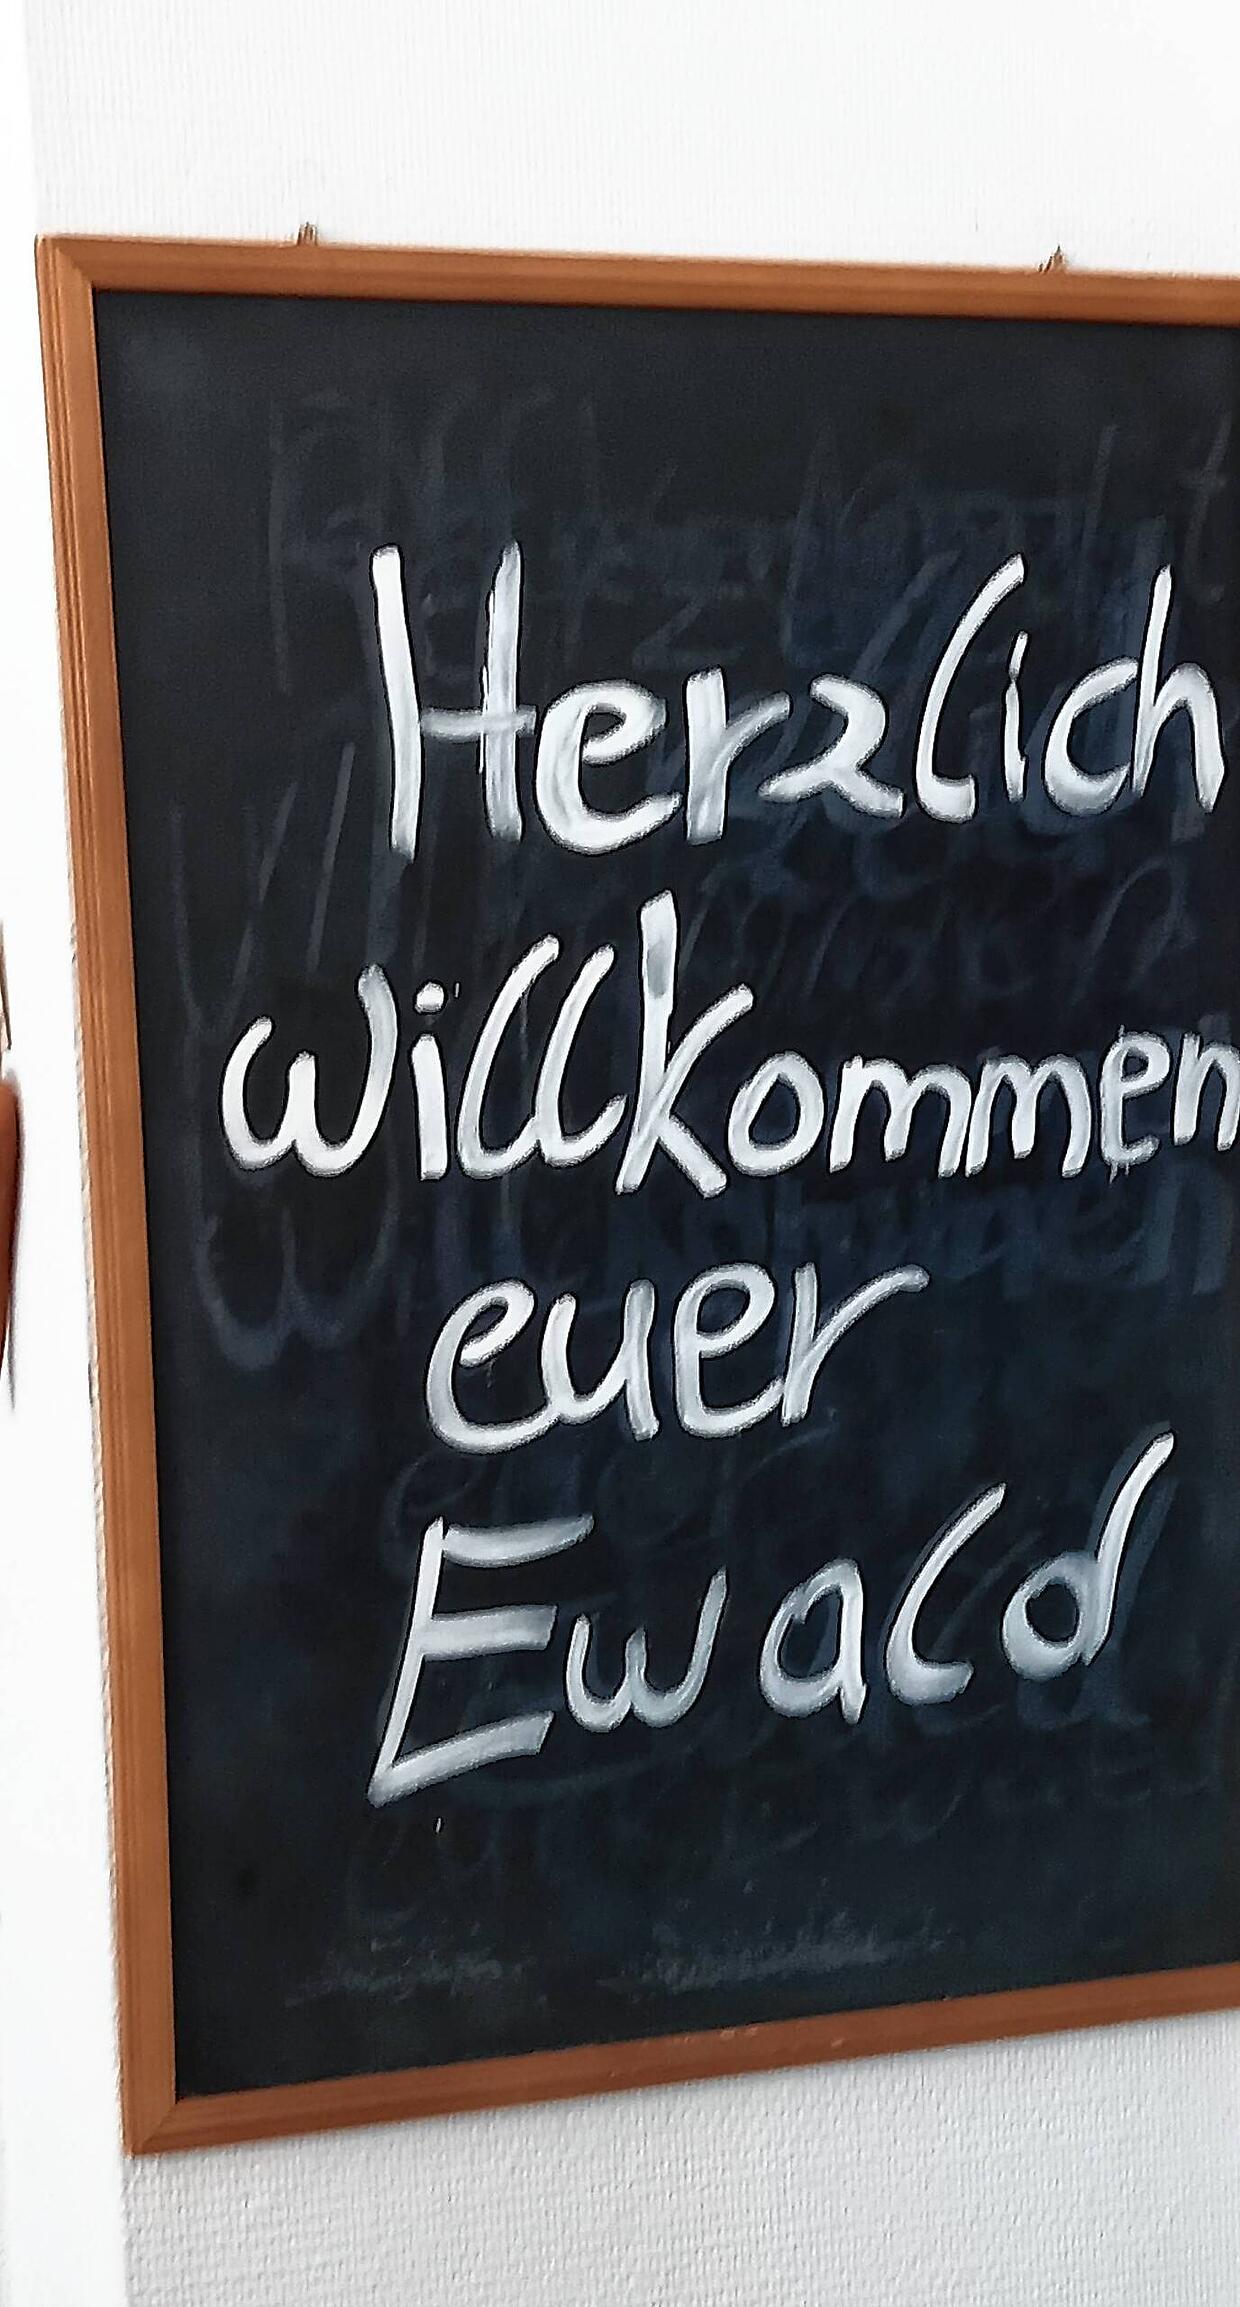 Herzlich
willkommen
euer
Ewald